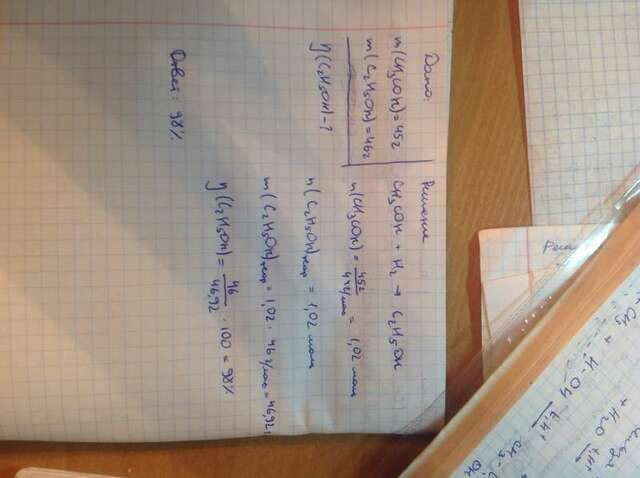 Дано:
m(CH3COH)=45г
m(C2H5OH)=46г
η(C2H5OH)-?
Решение
CH3COH + H2 → C2H5OH
n(CH3COH) = 45г / 44г/моль = 1,02 моль
n(C2H5OH)теор = 1,02 моль
m(C2H5OH)теор = 1,02 · 46г/моль = 46,92г
η(C2H5OH) = 46 / 46,92 · 100 = 98%
Ответ: 98%
CH3 +
H-OH
+ H2O